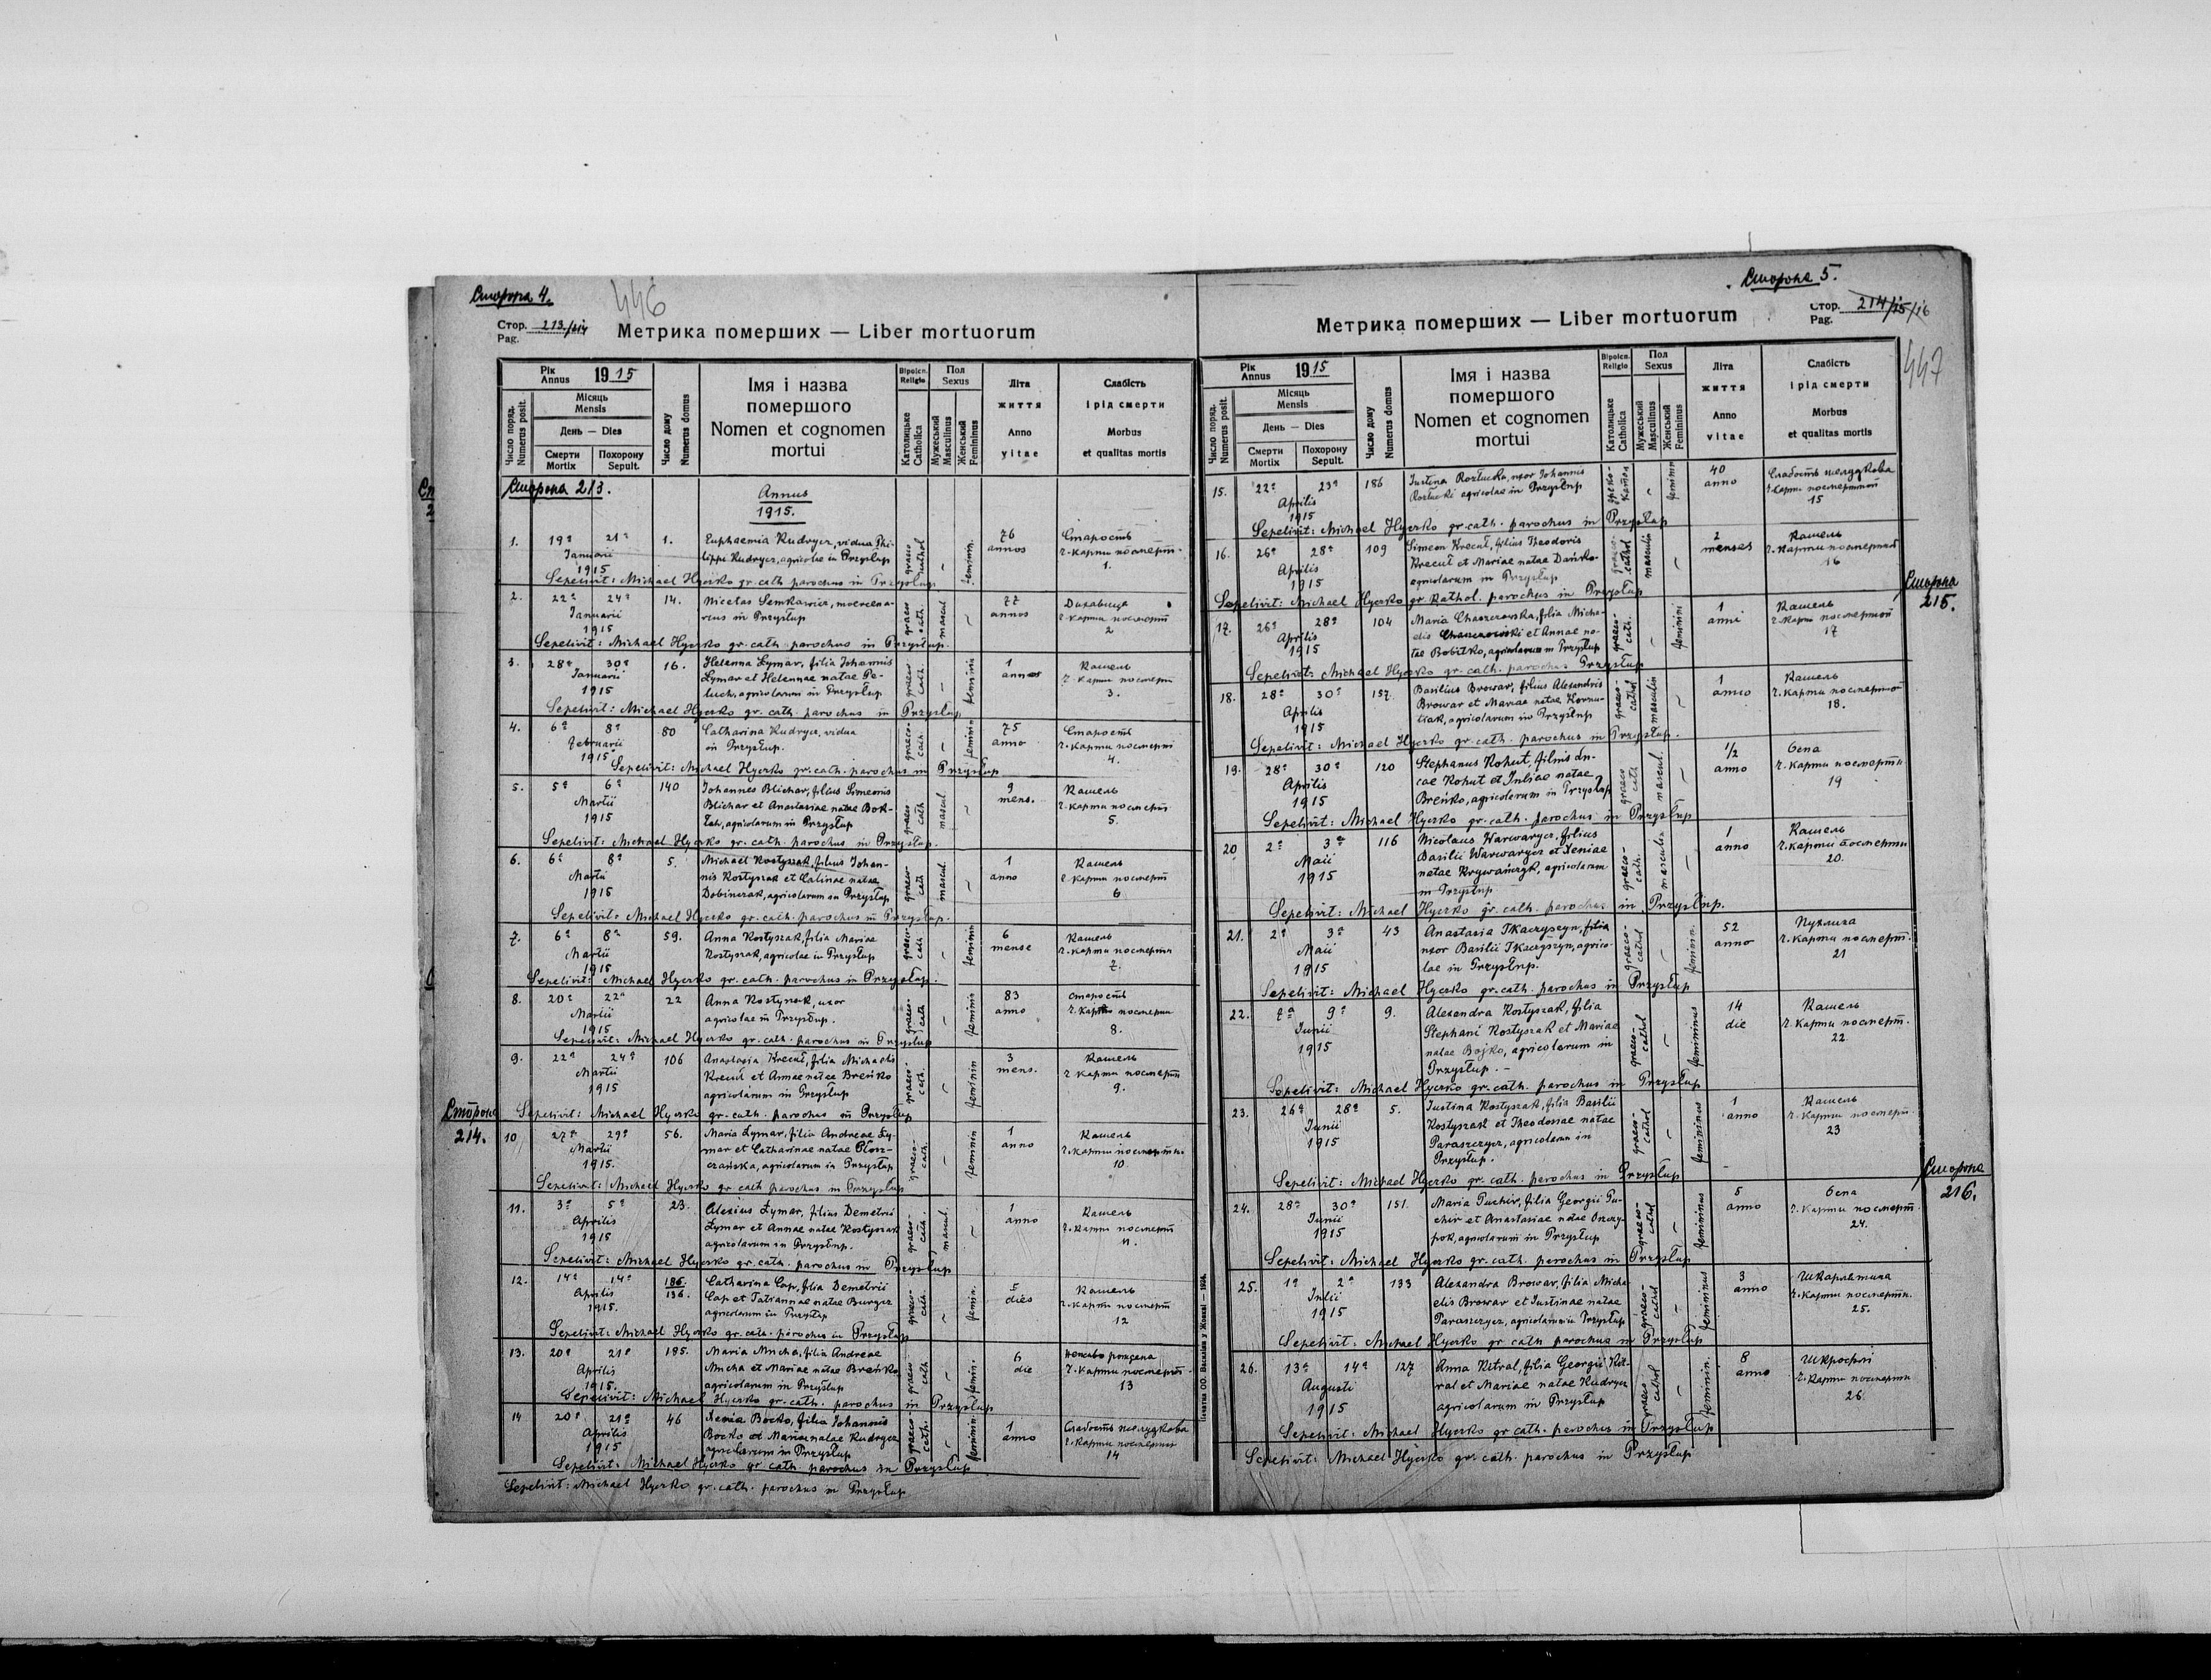 Сторона 4.
446
Стор. 213/214
Pag.
Метрика померших — Liber mortuorum
Рік
Annus 1915
Місяць
Mensis
День — Dies
Смерти
Mortix
Похорону
Sepult.
Число поряд.
Numerus posit.
Число дому
Numerus domus
Імя і назва
помершого
Nomen et cognomen
mortui
Віроісп.
Religio
Католицьке
Catholica
Пол
Sexus
Мужеський
Masculinus
Женський
Femininus
Літа
життя
Anno
vitae
Слабість
і рід смерти
Morbus
et qualitas mortis
Сторона 213.
Annus
1915.
1. 19ª 21ª 1. Euphaemia Kudrycz, vidua Phi-
Ianuarii lippi Kudrycz, agricolae in Przysłup
1915
graeco cathol – feminin. 76 annos
Старость
г. Карти посмерт.
1.
Sepelivit: Michael Hyczko gr. cath. parochus in Przysłup
2. 22ª 24ª 14. Nicetas Senkawicz, mercena-
Ianuarii rius in Przysłup
1915
graeco cath. mascul – 77 annos
Дихавиця
г. Карти посмерт
2
Sepelivit: Michael Hyczko gr. cath. parochus in Przysłup.
3. 28ª 30ª 16. Helenna Łymar, filia Iohannis
Ianuarii Łymar et Helennae natae Pe-
1915 luch, agricolarum in Przysłup
graeco cath. – feminin 1 annos
Кашель
г. Карти посмерт
3.
Sepelivit: Michael Hyczko gr. cath. parochus in Przysłup
4. 6ª 8ª 80 Catharina Kudrycz, vidua
Februarii in Przysłup.
1915
graeco-cath. – feminin 75 anno
Старость
г. Карти посмерт
4.
Sepelivit: Michael Hyczko gr. cath. parochus in Przysłup
5. 5ª 6ª 140 Iohannes Blichar, filius Simeonis
Martii Blichar et Anastasiae natae Bok-
1915 łah, agricolarum in Przysłup
graeco cath mascul – 9 mens.
Кашель
г. Карти посмерт
5.
Sepelivit: Michael Hyczko gr. cath. parochus in Przysłup.
6. 6ª 8ª 5. Michael Kostyszak, filius Iohan-
Martii nis Kostyszak et Calinae natae
1915 Dobinczak, agricolarum in Przysłup
graeco-cath mascul. – 1 anno
Кашель
г. Карти посмерт
6
Sepelivit: Michael Hyczko gr. cath. parochus in Przysłup.
7. 6ª 8ª 59. Anna Kostyszak, filia Mariae
Martii Kostyszak, agricolae in Przysłup
1915
graeco-cath – feminin 6 mense
Кашель
г. Карти посмерти
7.
Sepelivit: Michael Hyczko gr. cath. parochus in Przysłup.
8. 20ª 22ª 22 Anna Kostyszak, uxor
Martii agricolae in Przysłup.
1915
graeco-cath – feminin 83 anno
старость
г. Карти посмерти
8.
Sepelivit: Michael Hyczko gr. cath. parochus in Przysłup
9. 22ª 24ª 106 Anastasia Krecuł, filia Michaelis
Martii Krecuł et Annae natae Breńko
1915 agricolarum in Przysłup
graeco-cath. – feminin 3 mens.
Кашель
г. Карти посмерт
9.
Sepelivit: Michael Hyczko gr. cath. parochus in Przysłup
Сторона
214.
10 27ª 29ª 56. Maria Łymar, filia Andreae Ły-
Martii mar et Catharinae natae Płosz-
1915. czańska, agricolarum in Przysłup
graeco-cath. – feminin 1 anno
Кашель
г. Карти посмертн.
10.
Sepelivit: Michael Hyczko gr cath parochus in Przysłup
11. 3ª 5ª 23. Alexius Łymar, filius Demetrii
Aprilis Łymar et Annae natae Kostyszak
1915 agricolarum in Przysłup.
graeco-cath. mascul. – 1 anno
Кашель
г. Карти посмерт
11.
Sepelivit: Michael Hyczko gr. cath. parochus in Przysłup
12. 14ª 14ª 186. Catharina Cap, filia Demetrii
Aprilis 136. Cap et Tatiannae natae Burycz
1915. agricolarum in Przysłup
graeco-cath – femin. 5 dies
Кашель
г. Карти посмерт
12
Sepelivit: Michael Hyczko gr. cath. parochus in Przysłup
13. 20ª 21ª 185. Maria Mucha, filia Andreae
Aprilis Mucha et Mariae natae Breńko
1915. agricolarum in Przysłup
graeco cath – femin. 6 die
нежива рождена
г. Карти посмерт
13
Sepelivit: Michael Hyczko gr. cath. parochus in Przysłup
14 20ª 21ª 46 Xenia Bocko, filia Iohannis
Aprilis Bocko et Mariae natae Kudrycz
1915 agricolarum in Przysłup
graeco-cath. – feminin 1 anno
Слабость желудкова
г. Карти посмерти
14
Sepelivit: Michael Hyczko gr cath. parochus in Przysłup
Sepelivit: Michael Hyczko gr. cath. parochus in Przysłup
Печатня ОО. Василіян у Жовкві — 1936.
Сторона 5.
Стор. 214/15/16
Pag.
447
Метрика померших — Liber mortuorum
Рік
Annus 1915
Місяць
Mensis
День — Dies
Смерти
Mortix
Похорону
Sepult.
Число поряд.
Numerus posit.
Число дому
Numerus domus
Імя і назва
помершого
Nomen et cognomen
mortui
Віроісп.
Religio
Католицьке
Catholica
Пол
Sexus
Мужеський
Masculinus
Женський
Femininus
Літа
життя
Anno
vitae
Слабість
і рід смерти
Morbus
et qualitas mortis
15. 22ª 23ª 186 Iustina Rozłucka, uxor Iohannis
Aprilis Rozłucki agricolae in Przysłup
1915
греко-катол – feminin 40 anno
Слабость желудкова
г. Карти посмертной
15
Sepelivit: Michael Hyczko gr. cath. parochus in Przysłup
16. 26ª 28ª 109 Simeon Krecuł, filius Theodoris
Aprilis Krecuł et Mariae natae Dańko
1915 agricolarum in Przysłup
graeco-cathol masculin – 2 menses
Кашель
г. Карти посмертной
16
Sepelivit: Michael Hyczko gr. kathol. parochus in Przysłup
Сторона
215.
17. 26ª 28ª 104 Maria Chaszczowska, filia Micha-
Aprilis elis Chaszczowski et Annae na-
1915 tae Bobitko, agricolarum in Przysłup
graeco-cath. – feminini 1 anni
Кашель
г. Карти посмертной
17
Sepelivit: Michael Hyczko gr. cath. parochus Przysłup
18. 28ª 30ª 157. Basilius Browar, filius Alexandris
Aprilis Browar et Mariae natae Kornu-
1915 tiak, agricolarum in Przysłup
graeco-cathol masculin – 1 anno
Кашель
г. Карти посмертной
18.
Sepelivit: Michael Hyczko gr. cath. parochus in Przysłup.
19. 28ª 30ª 120 Stephanus Kohut, filius Lu-
Aprilis cae Kohut et Iuliae natae
1915 Breńko, agricolarum in Przysłup
graeco cath mascul. – 1/2 anno
Оспа
г. Карти посмертн.
19
Sepelivit: Michael Hyczko gr. cath. parochus in Przysłup
20 2ª 3ª 116 Nicolaus Warwarycz, filius
Maii Basilii Warwarycz et Xeniae
1915 natae Krywańczyk, agricolarum
in Przysłup
graeco-cath. masculin – 1 anno
Кашель
г. Карти посмертн
20.
Sepelivit: Michael Hyczko gr. cath. parochus in Przysłup.
21. 2ª 3ª 43 Anastasia Tkaczyszyn, filia
Maii uxor Basilii Tkaczyszyn, agrico-
1915 lae in Przysłup.
graeco-cathol – feminin. 52 anno
Пухлина
г. Карти посмерт.
21
Sepelivit: Michael Hyczko gr. cath. parochus in Przysłup
22. 7ª 9ª 9. Alexandra Kostyszak, filia
Iunii Stephani Kostyszak et Mariae
1915 natae Bojko, agricolarum in
Przysłup. –
graeco-cathol – femininus 14 die
Кашель
г. Карти посмерт.
22.
Sepelivit: Michael Hyczko gr. cath. parochus in Przysłup
23. 26ª 28ª 5. Iustina Kostyszak, filia Basilii
Iunii Kostyszak et Theodosiae natae
1915 Paraszczycz, agricolarum in
Przysłup.
graeco-cathol – femininus 1 anno
Кашель
г. Карти посмерт.
23
Sepelivit: Michael Hyczko gr. cath. parochus in Przysłup
Сторона
216.
24. 28ª 30ª 151. Maria Puchir, filia Georgii Pu-
Iunii chir et Anastasiae natae Onczy-
1915 pok, agricolarum in Przysłup
graeco-cathol – femininus 5 anno
Оспа
г. Карти посмерт.
24.
Sepelivit: Michael Hyczko gr. cath. parochus in Przysłup
25. 1ª 2ª 133 Alexandra Browar, filia Micha-
Iulii elis Browar et Iustinae natae
1915 Paraszczycz, agricolarum in Przysłup
graeco-cathol – femininus 3 anno
Шкарлятина
г. Карти посмертн.
25.
Sepelivit: Michael Hyczko gr cath parochus in Przysłup
26. 13ª 14ª 127 Anna Kitral, filia Georgii Kit-
Augusti ral et Mariae natae Kudrycz
1915 agricolarum in Przysłup
graeco cathol – feminin. 8 anno
Шкрофлі
г. Карти посмертн
26.
Sepelivit: Michael Hyczko gr cath. parochus in Przysłup
Sepelivit: Michael Hyczko gr. cath. parochus in Przysłup